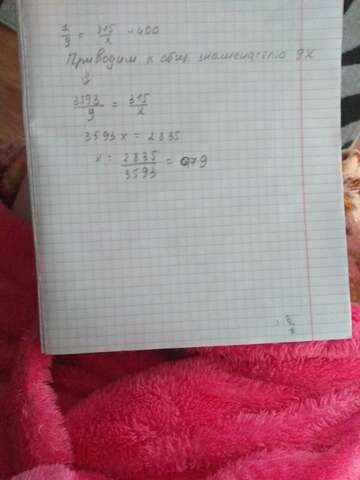 1/9 = 315/x - 400
Приводим к общ знаменателю 9x
3593/9 = 315/x
3593x = 2835
x = 2835/3593 = 0,79